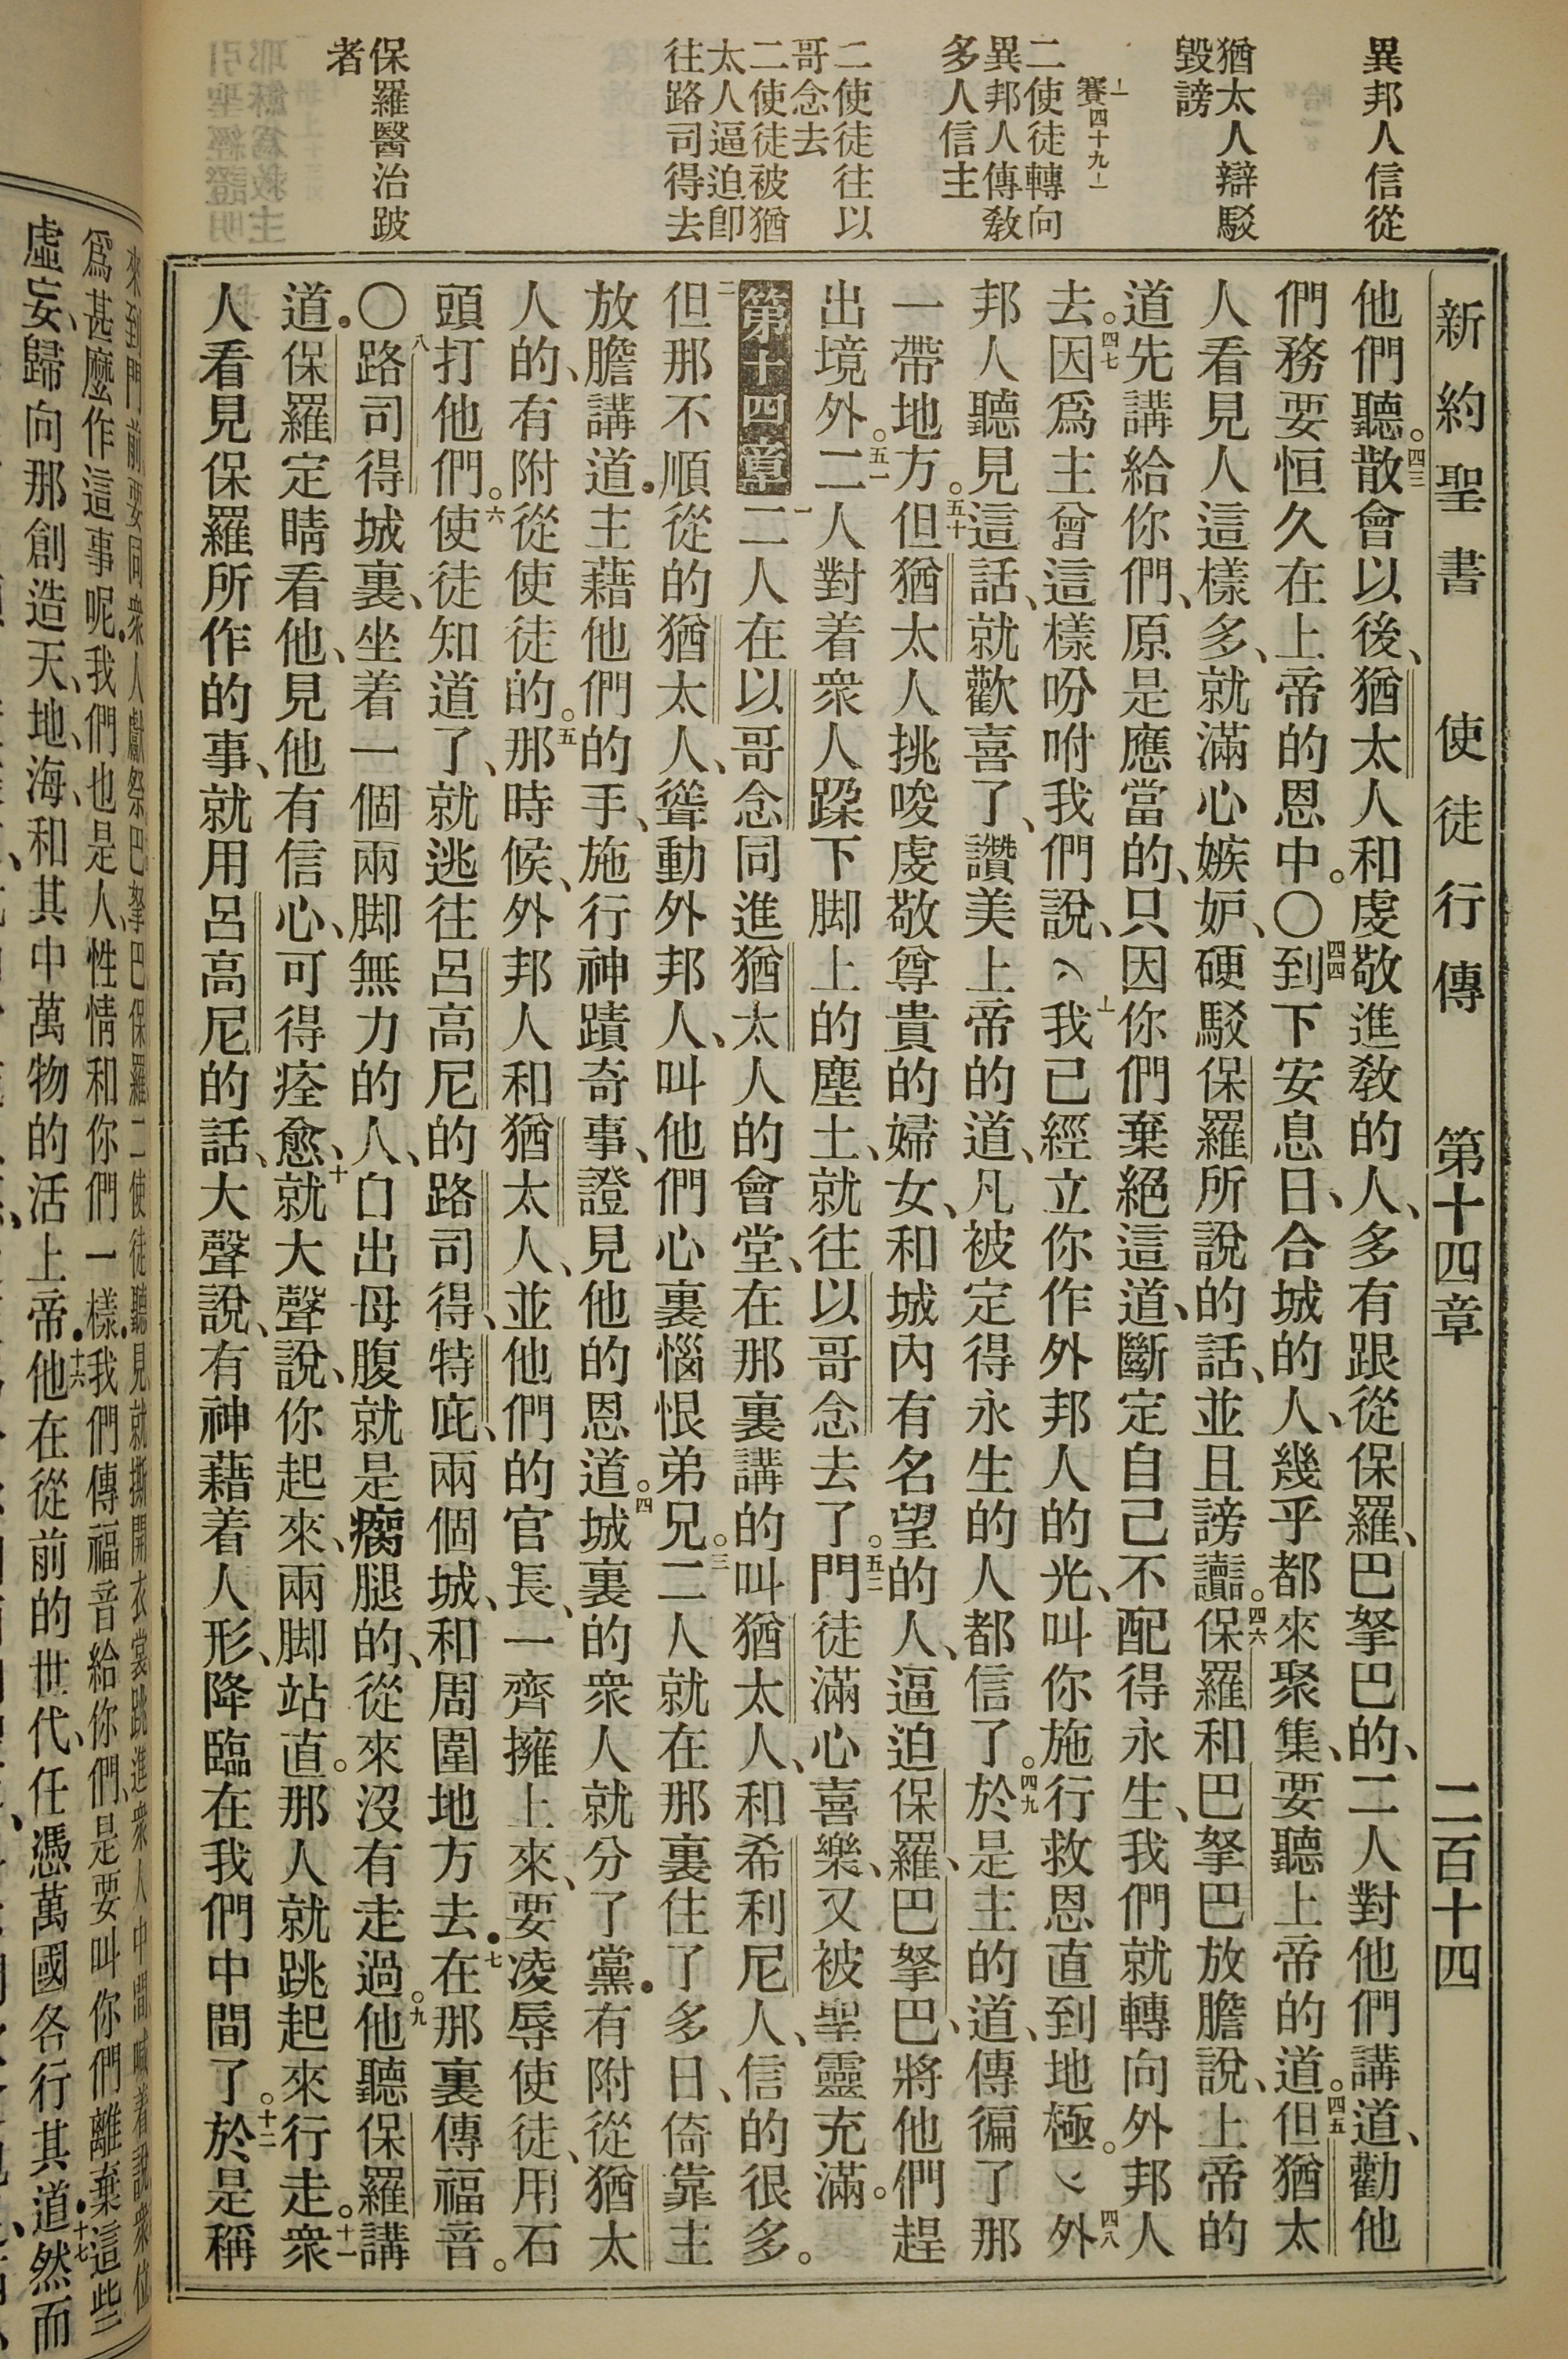 新約聖書 使徒行傳 第十四章 二百十四
異邦人信從
猶太人辯駁
毀謗
上賽四十九
二使徒轉向
異邦人傳敎
多人信主
二使徒往以
哥念去
二使徒被猶
太人逼迫卽
往路司得去
保羅醫治跛
者
他們聽。四三散會以後、猶太人和虔敬進敎的人、多有跟從保羅、巴拏巴的、二人對他們講道、勸他
們務要恒久在上帝的恩中。〇四四到下安息日、合城的人、幾乎都來聚集、要聽上帝的道。四五但猶太
人看見人這樣多、就滿心嫉妒、硬駁保羅所說的話、並且謗讟。四六保羅和巴拏巴放膽說、上帝的
道先講給你們、原是應當的、只因你們棄絕這道、斷定自己不配得永生、我們就轉向外邦人
去。四七因爲主曾這樣吩咐我們說、上我已經立你作外邦人的光、叫你施行救恩直到地極。四八外
邦人聽見這話、就歡喜了、讚美上帝的道、凡被定得永生的人都信了。四九於是主的道、傳徧了那
一帶地方。五十但猶太人挑唆虔敬尊貴的婦女、和城內有名望的人、逼迫保羅、巴拏巴、將他們趕
出境外。五一二人對着衆人跺下脚上的塵土、就往以哥念去了。五二門徒滿心喜樂、又被聖靈充滿。
第十四章 一二人在以哥念同進猶太人的會堂、在那裏講的叫猶太人、和希利尼人、信的很多。
二但那不順從的猶太人、聳動外邦人、叫他們心裏惱恨弟兄。三二人就在那裏住了多日、倚靠主
放膽講道．主藉他們的手、施行神蹟奇事、證見他的恩道。四城裏的衆人就分了黨．有附從猶太
人的、有附從使徒的。五那時候、外邦人和猶太人、並他們的官長、一齊擁上來、要凌辱使徒、用石
頭打他們。六使徒知道了、就逃往呂高尼的路司得、特庇、兩個城、和周圍地方去．七在那裏傳福音。
〇八路司得城裏、坐着一個兩脚無力的人、自出母腹就是瘸腿的、從來沒有走過。九他聽保羅講
道．保羅定睛看他、見他有信心、可得痊愈、十就大聲說、你起來、兩脚站直。那人就跳起來行走。十一衆
人看見保羅所作的事、就用呂高尼的話、大聲說、有神藉着人形、降臨在我們中間了。十二於是稱
來到門前要同衆人獻祭巴拏巴保羅二使徒聽見就撕開衣裳跳進衆人中間喊着說衆位
爲甚麼作這事呢．我們也是人、性情和你們一樣．我們傳福音給你們、是要叫你們離棄這些
虛妄、歸向那創造天、地、海、和其中萬物的活上帝．十六他在從前的世代、任憑萬國各行其道．十七然而